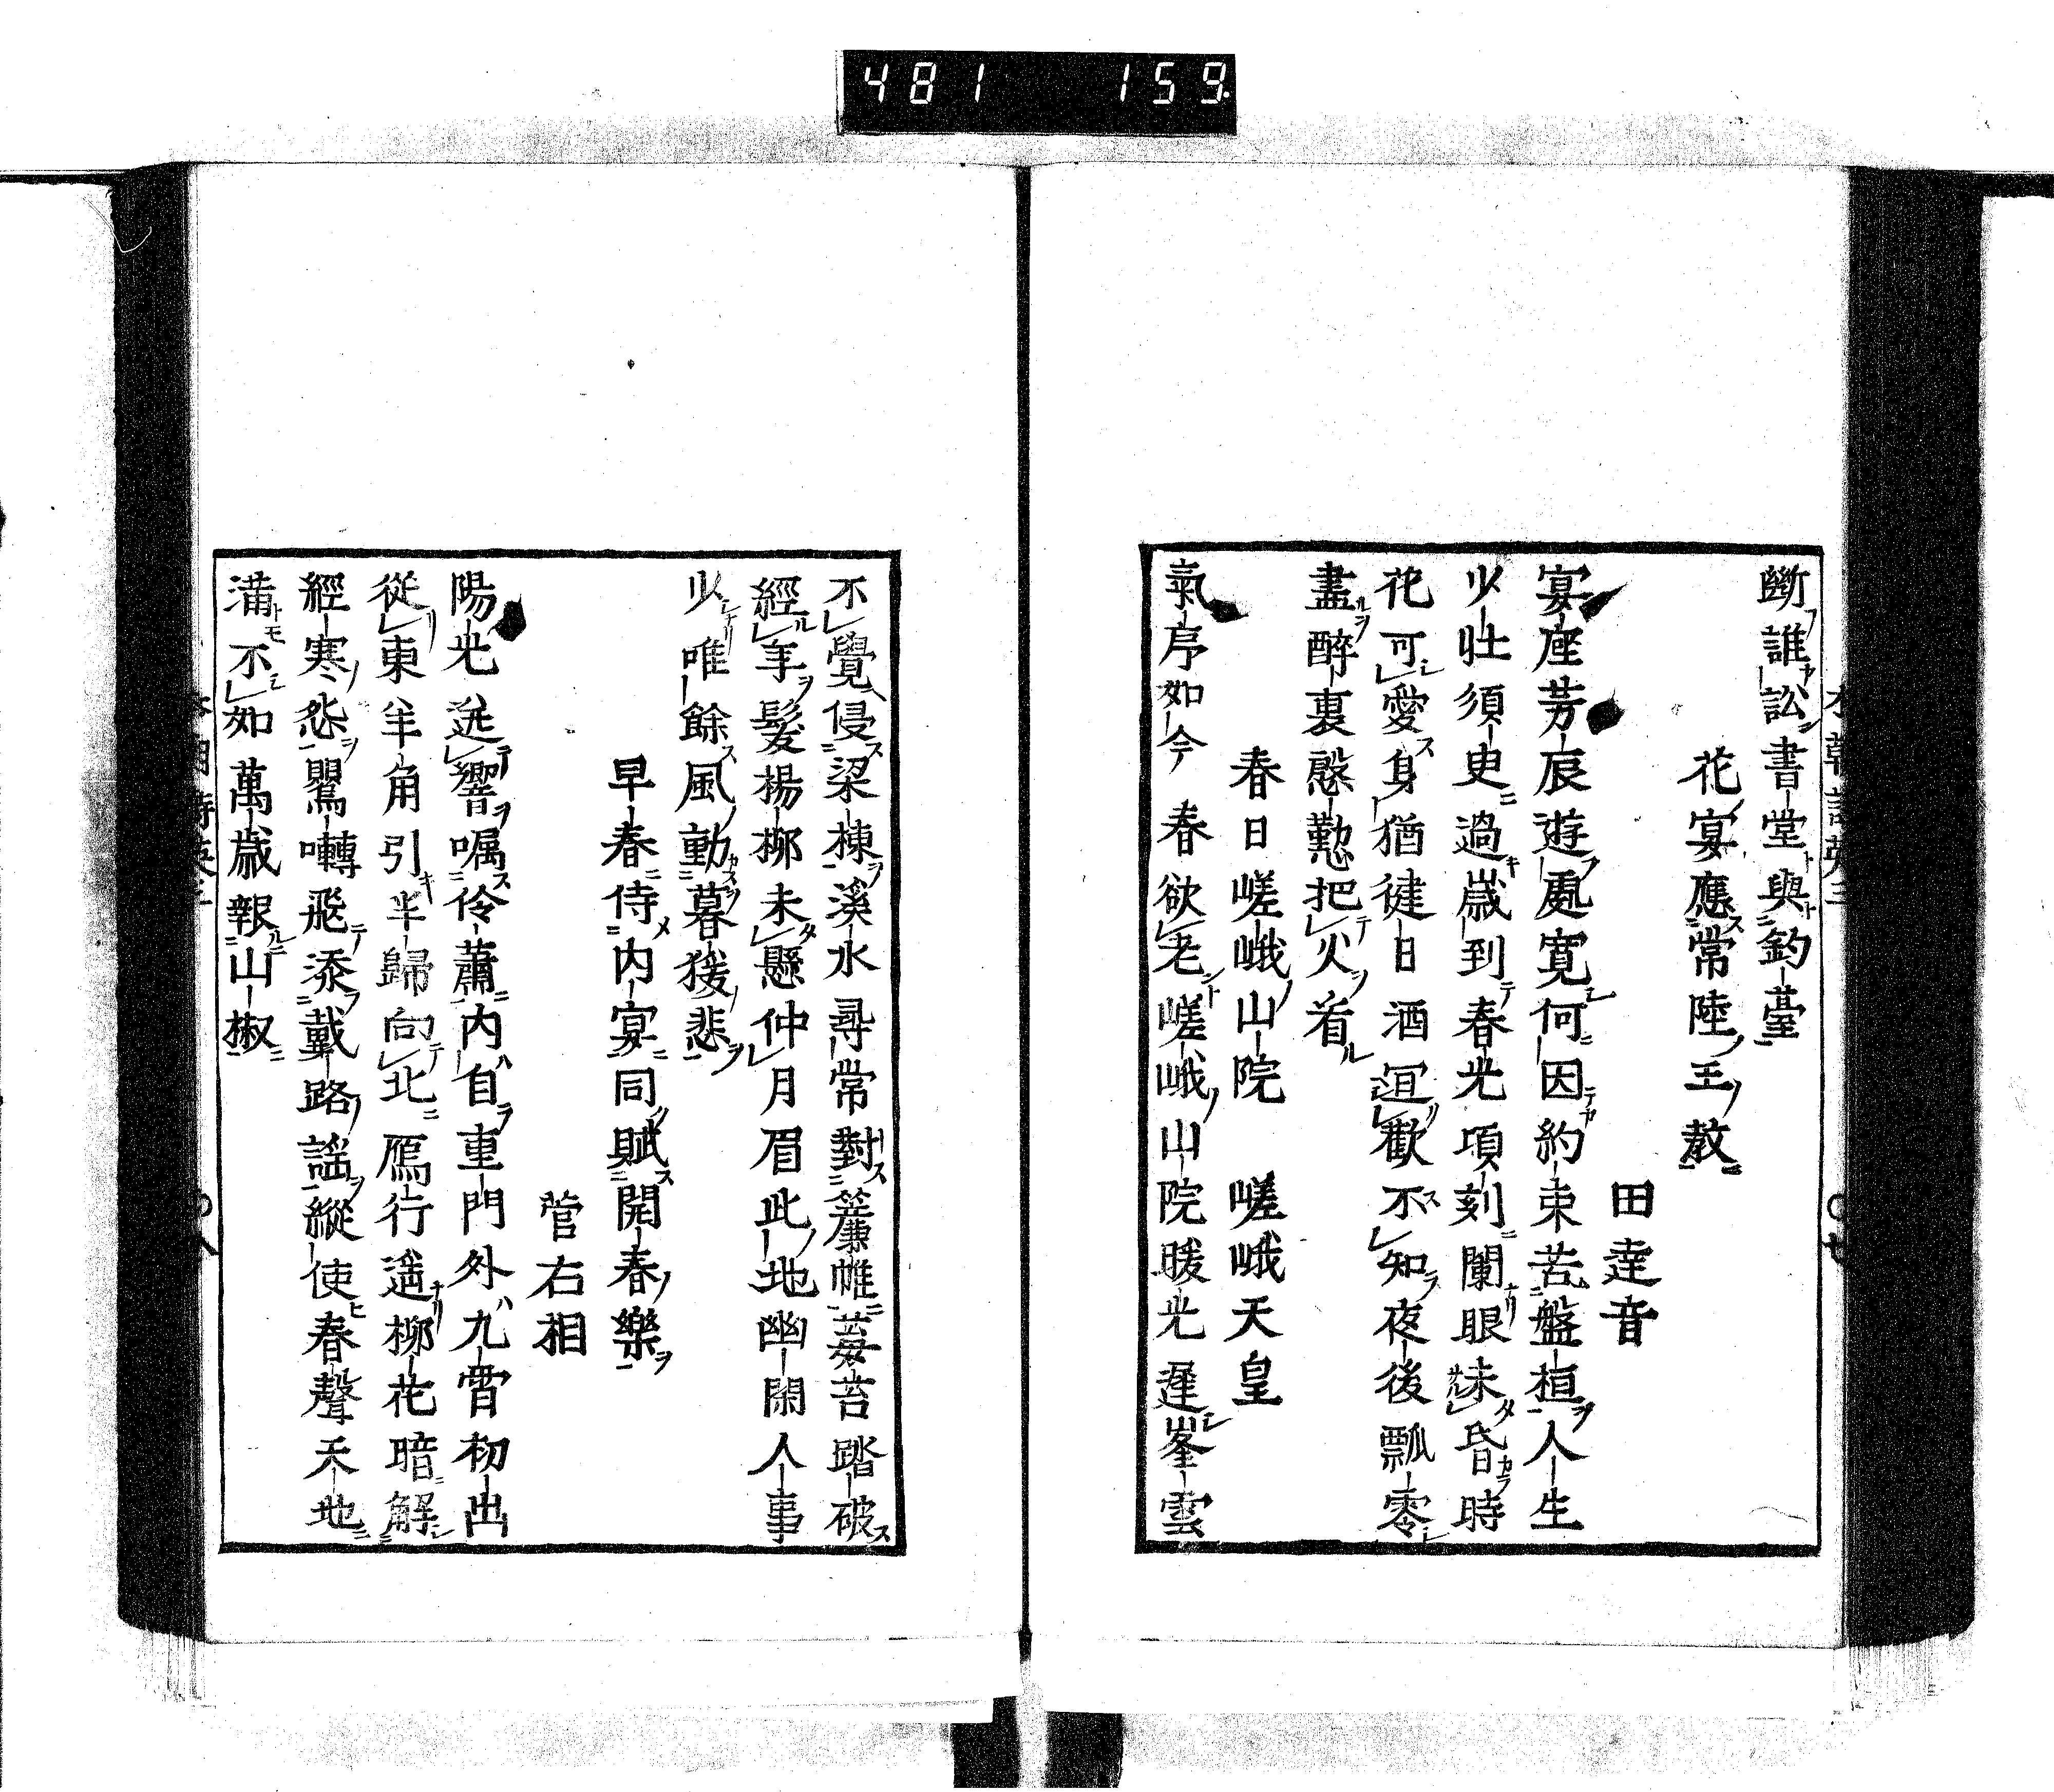 481 159
斷誰訟書堂與釣臺
花宴應常陸王教
田達音
宴座芳辰遊處寛何因約束苦盤桓人生
少壯須臾過歳到春光頃刻闌眼未昏時
花可愛身猶健日酒宜歡不知夜後飄零
盡醉裏慇懃把火看
春日嵯峨山院 嵯峨天皇
氣序如今春欲老嵯峨山院暖光遲峯雲
不覺侵梁棟溪水尋常對簾帷莓苔踏破
經年髮楊柳未懸仲月眉此地幽閑人事
少唯餘風動暮猿悲
早春侍内宴同賦開春樂
菅右相
陽光逃響嘱伶蕭内自重門外九霄初出
從東半角引半歸向北鴈行遥柳花暗解
經寒怨鸎囀飛添戴路謡縱使春聲天地
滿不如萬歳報山椒